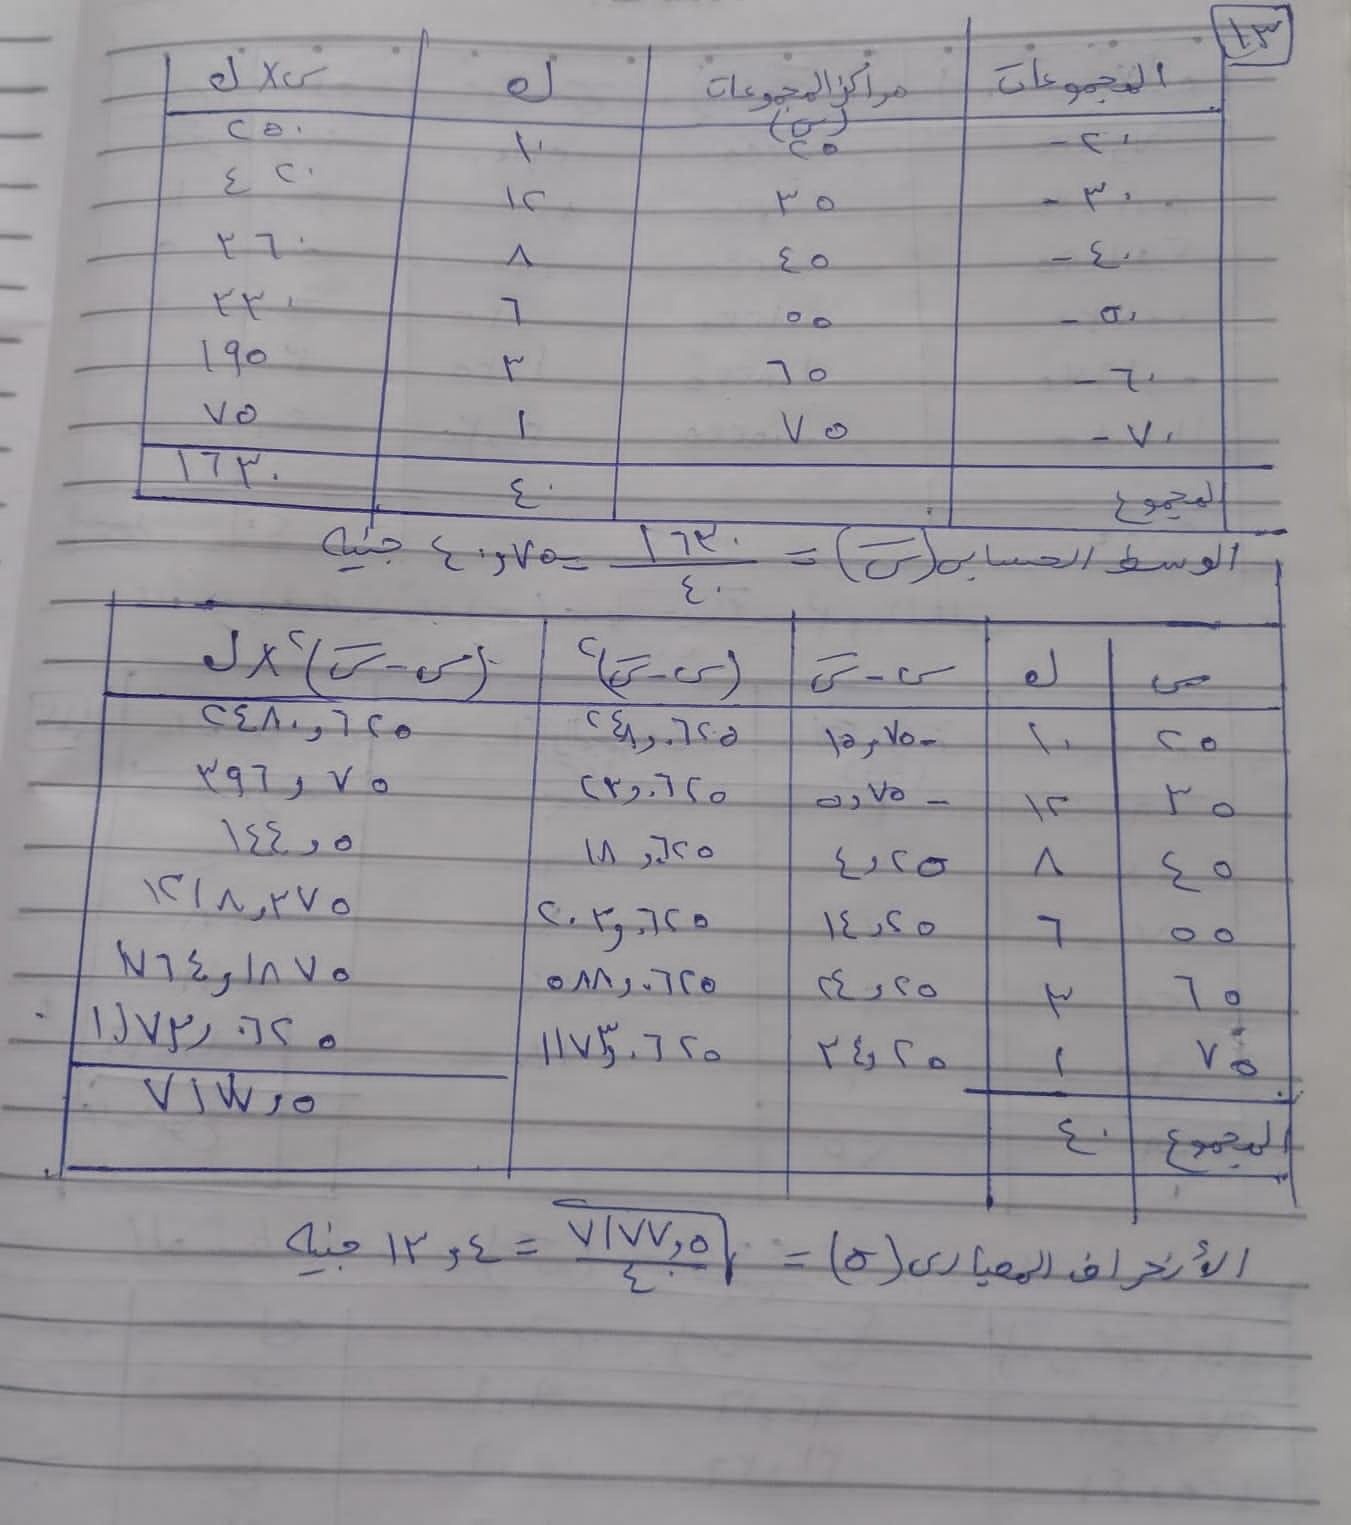 ١٣
المجموعات مراكز المجموعات (س) ك س×ك
٢٠- ٢٥ ١٠ ٢٥٠
٣٠- ٣٥ ١٢ ٤٢٠
٤٠- ٤٥ ٨ ٣٦٠
٥٠- ٥٥ ٦ ٣٣٠
٦٠- ٦٥ ٣ ١٩٥
٧٠- ٧٥ ١ ٧٥
المجموع ٤٠ ١٦٣٠
الوسط الحسابى (س̄) = ١٦٣٠ / ٤٠ = ٤٠,٧٥ جنيه
س ك س-س̄ (س-س̄)٢ (س-س̄)٢×ك
٢٥ ١٠ -١٥,٧٥ ٢٤٨,٠٦٢٥ ٢٤٨٠,٦٢٥
٣٥ ١٢ -٥,٧٥ ٣٣,٠٦٢٥ ٣٩٦,٧٥
٤٥ ٨ ٤,٢٥ ١٨,٠٦٢٥ ١٤٤,٥
٥٥ ٦ ١٤,٢٥ ٢٠٣,٠٦٢٥ ١٢١٨,٣٧٥
٦٥ ٣ ٢٤,٢٥ ٥٨٨,٠٦٢٥ ١٧٦٤,١٨٧٥
٧٥ ١ ٣٤,٢٥ ١١٧٣,٠٦٢٥ ١١٧٣,٠٦٢٥
المجموع ٤٠ ٧١٧٧,٥
الأنحراف المعيارى (σ) = √٧١٧٧,٥ / ٤٠ = ١٣,٤ جنيه